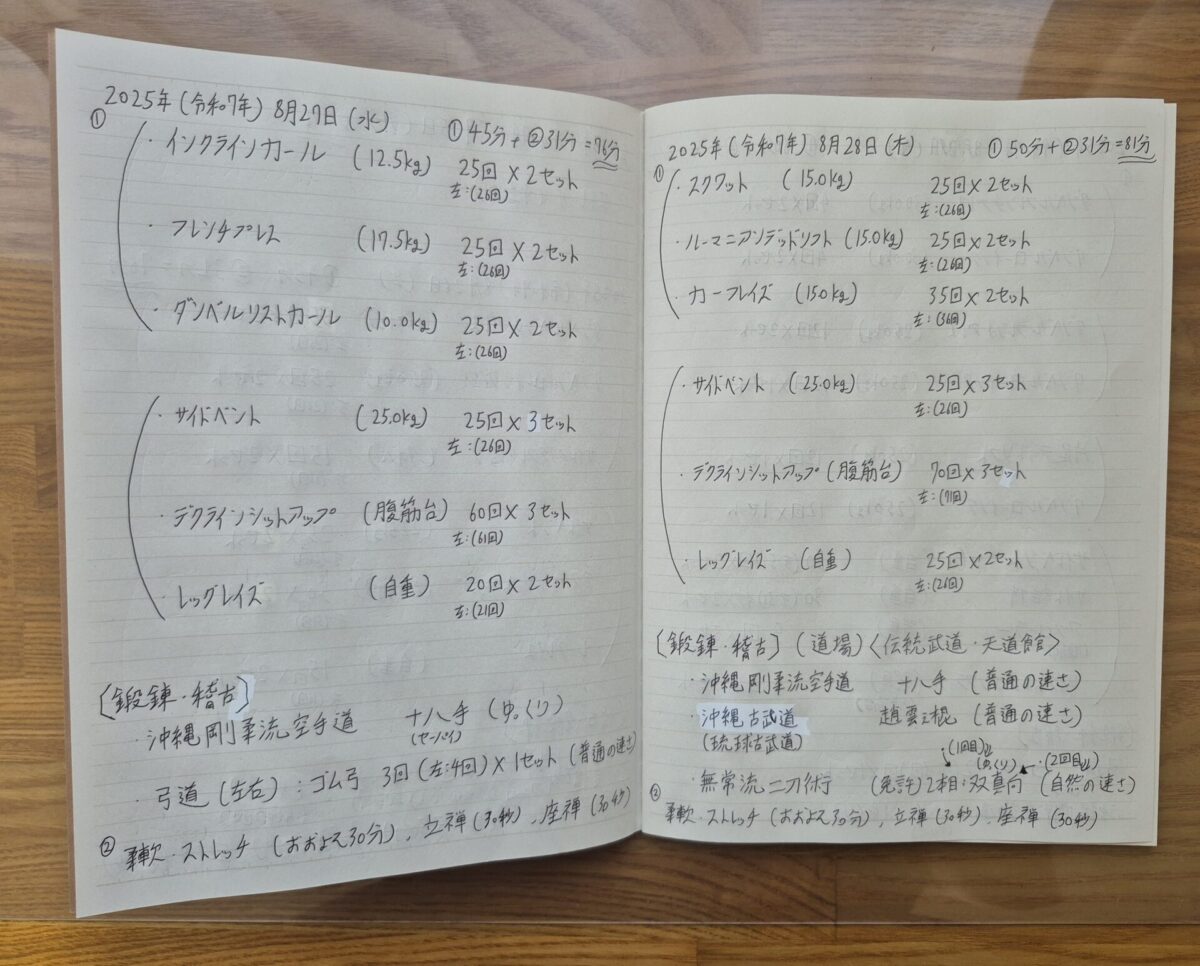 2025年(令和7年) 8月27日(水) ①45分+②31分=76分
①
・インクラインカール (12.5kg) 25回×2セット
左:(26回)
・フレンチプレス (17.5kg) 25回×2セット
左:(26回)
・ダンベルリストカール (10.0kg) 25回×2セット
左:(26回)
・サイドベント (25.0kg) 25回×3セット
左:(26回)
・デクラインシットアップ (腹筋台) 60回×3セット
左:(61回)
・レッグレイズ (自重) 20回×2セット
左:(21回)
〔鍛錬・稽古〕
・沖縄剛柔流空手道 十八手 (ゆっくり)
(セーパイ)
・弓道(左右):ゴム弓 3回(左:4回)×1セット(普通の速さ)
② 柔軟・ストレッチ (おおよそ30分)、立禅(30秒)、座禅(30秒)
2025年(令和7年) 8月28日(木) ①50分+②31分=81分
①
・スクワット (15.0kg) 25回×2セット
左:(26回)
・ルーマニアンデッドリフト (15.0kg) 25回×2セット
左:(26回)
・カーフレイズ (15.0kg) 35回×2セット
左:(36回)
・サイドベント (25.0kg) 25回×3セット
左:(26回)
・デクラインシットアップ(腹筋台) 70回×3セット
左:(71回)
・レッグレイズ (自重) 25回×2セット
左:(26回)
〔鍛錬・稽古〕(道場)〈伝統武道・天道館〉
・沖縄剛柔流空手道 十八手 (普通の速さ)
・沖縄古武道 趙雲之棍 (普通の速さ)
(琉球古武道)
(1回目)は
(ゆっくり) ・(2回目)は
・無常流二刀術 (免許)2相:双真向 (自然の速さ)
② 柔軟・ストレッチ (おおよそ30分)、立禅(30秒)、座禅(30秒)